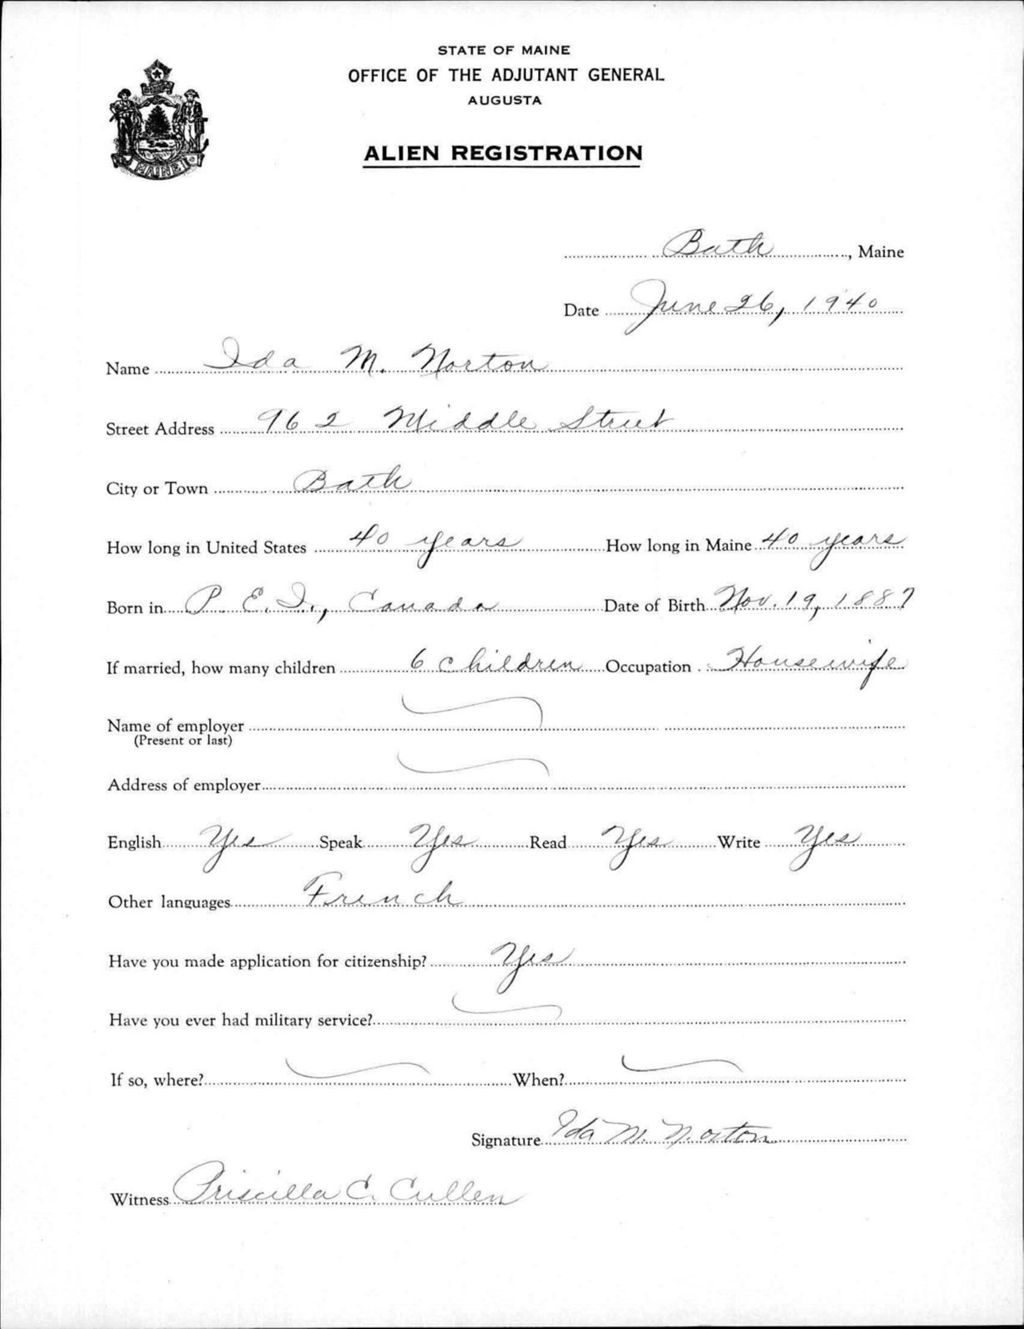 STATE OF MAINE
OFFICE OF THE ADJUTANT GENERAL
AUGUSTA
ALIEN REGISTRATION
MAINE
Bath, Maine
Date June 26, 1940
Name Ida M. Norton
Street Address 962 Middle Street
City or Town Bath
How long in United States 40 years How long in Maine 40 years
Born in P. E. I., Canada Date of Birth Nov. 19, 1887
If married, how many children 6 children Occupation Housewife
Name of employer
(Present or last)
Address of employer
English Yes Speak Yes Read Yes Write Yes
Other languages French
Have you made application for citizenship? Yes
Have you ever had military service?
If so, where? When?
Signature Ida M. Norton
Witness Priscilla C. Cullen